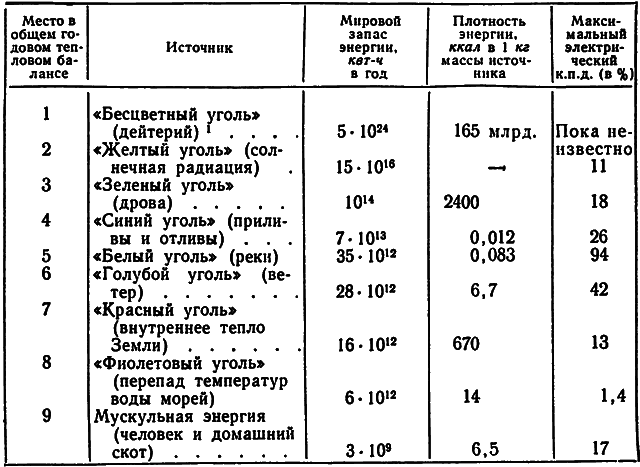 Место в общем годовом тепловом балансе | Источник | Мировой запас энергии, квт-ч в год | Плотность энергии, ккал в 1 кг массы источника | Максимальный электрический к.п.д. (в %)
1 «Бесцветный уголь»
(дейтерий) ¹ . . . . 5·10²⁴ 165 млрд. Пока не-
2 «Желтый уголь» (сол- известно
нечная радиация) . 15·10¹⁶ — 11
3 «Зеленый уголь»
(дрова) . . . . . 10¹⁴ 2400 18
4 «Синий уголь» (прили-
вы и отливы) . . . 7·10¹³ 0,012 26
5 «Белый уголь» (реки) 35·10¹² 0,083 94
6 «Голубой уголь» (ве-
тер) . . . . . . . 28·10¹² 6,7 42
7 «Красный уголь»
(внутреннее тепло
Земли) . . . . . . 16·10¹² 670 13
8 «Фиолетовый уголь»
(перепад температур
воды морей) 6·10¹² 14 1,4
9 Мускульная энергия
(человек и домашний
скот) . . . . . . 3·10⁹ 6,5 17